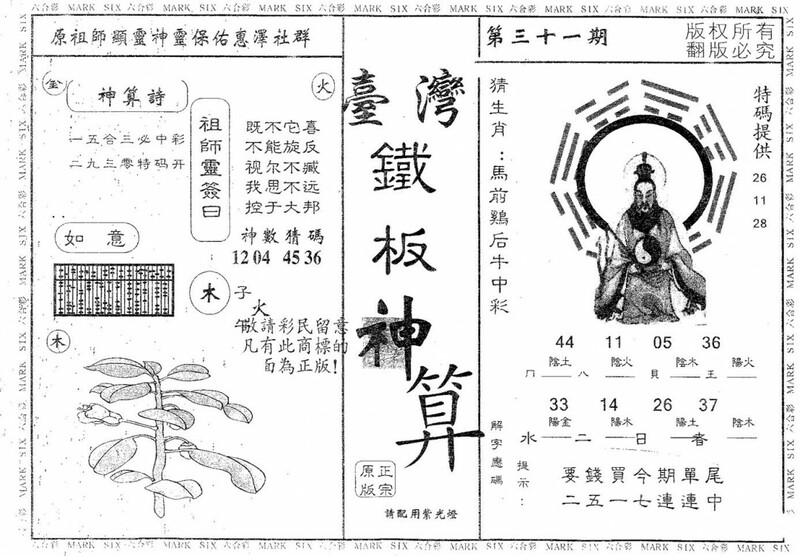 六合彩 MARK SIX 六合彩 MARK SIX 六合彩 MARK SIX 六合彩 MARK SIX 六合彩 MARK SIX 六合彩 MARK SIX 六合彩 MARK SIX
原祖師顯靈神靈保佑惠澤社群
金
神算詩
一五合三必中彩
二九三零特码开
祖師靈簽曰
火
既不它喜
不能旋反
视尔不臧
我思不远
控于大邦
神數猜碼
12 04 45 36
如意
木
子
火
敬請彩民留意
凡有此商標的
百為正版!
木
臺灣
鐵
板
神
算
正宗
原版
請配用紫光燈
第三十一期
版权所有
翻版必究
猜生肖：馬前鷄后牛中彩
特碼提供
26
11
28
44 11 05 36
陰土 陰火 陰木 陽火
八 貝 王
33 14 26 37
陽金 陽木 陽土 陰木
水 二 日 春
解字應碼
提示：
要錢買今期單尾
二五一七連連中
六合彩 MARK SIX 六合彩 MARK SIX 六合彩 MARK SIX 六合彩 MARK SIX 六合彩 MARK SIX 六合彩 MARK SIX 六合彩 MARK SIX